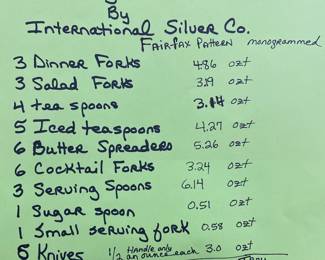 By
International Silver Co.
Fairfax Pattern monogrammed
3 Dinner Forks 4.86 ozt
3 Salad Forks 3.19 ozt
4 tea spoons 3.14 ozt
5 Iced teaspoons 4.27 ozt
6 Butter Spreaders 5.26 ozt
6 Cocktail Forks 3.24 ozt
3 Serving Spoons 6.14 ozt
1 Sugar spoon 0.51 ozt
1 Small serving fork 0.58 ozt
Knives 1/2 Handle only an ounce each 3.0 ozt